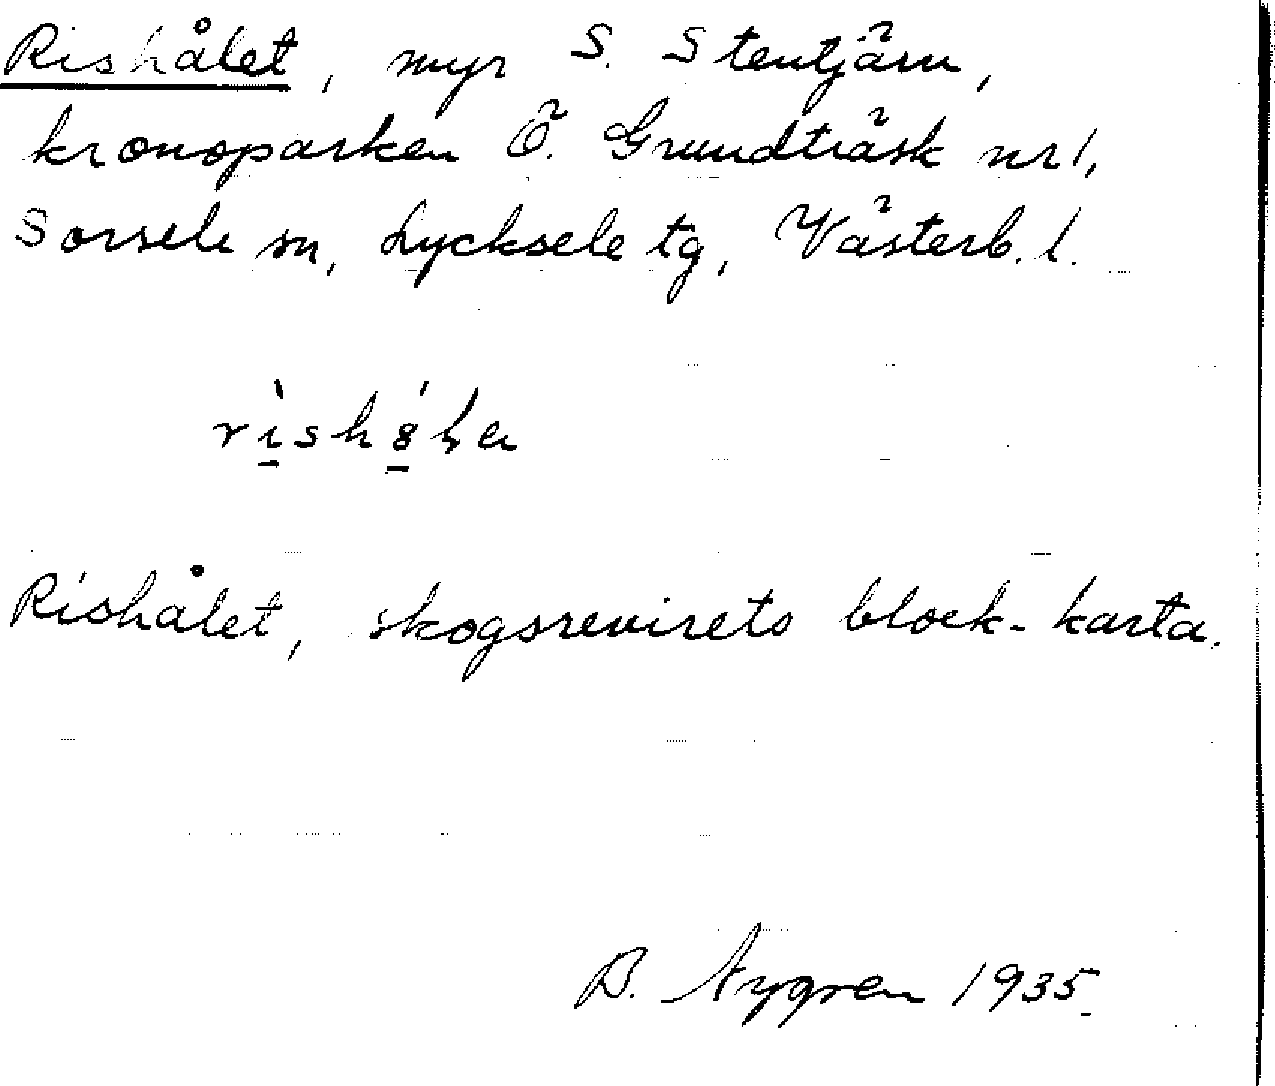 Rishålet, myr S. Stentjärn,
kronoparken Ö. Grundträsk nr 1,
Sorsele sn, Lycksele tg, Västerb. l.
Rishålet, skogsrevirets block-karta.
B. Nygren 1935